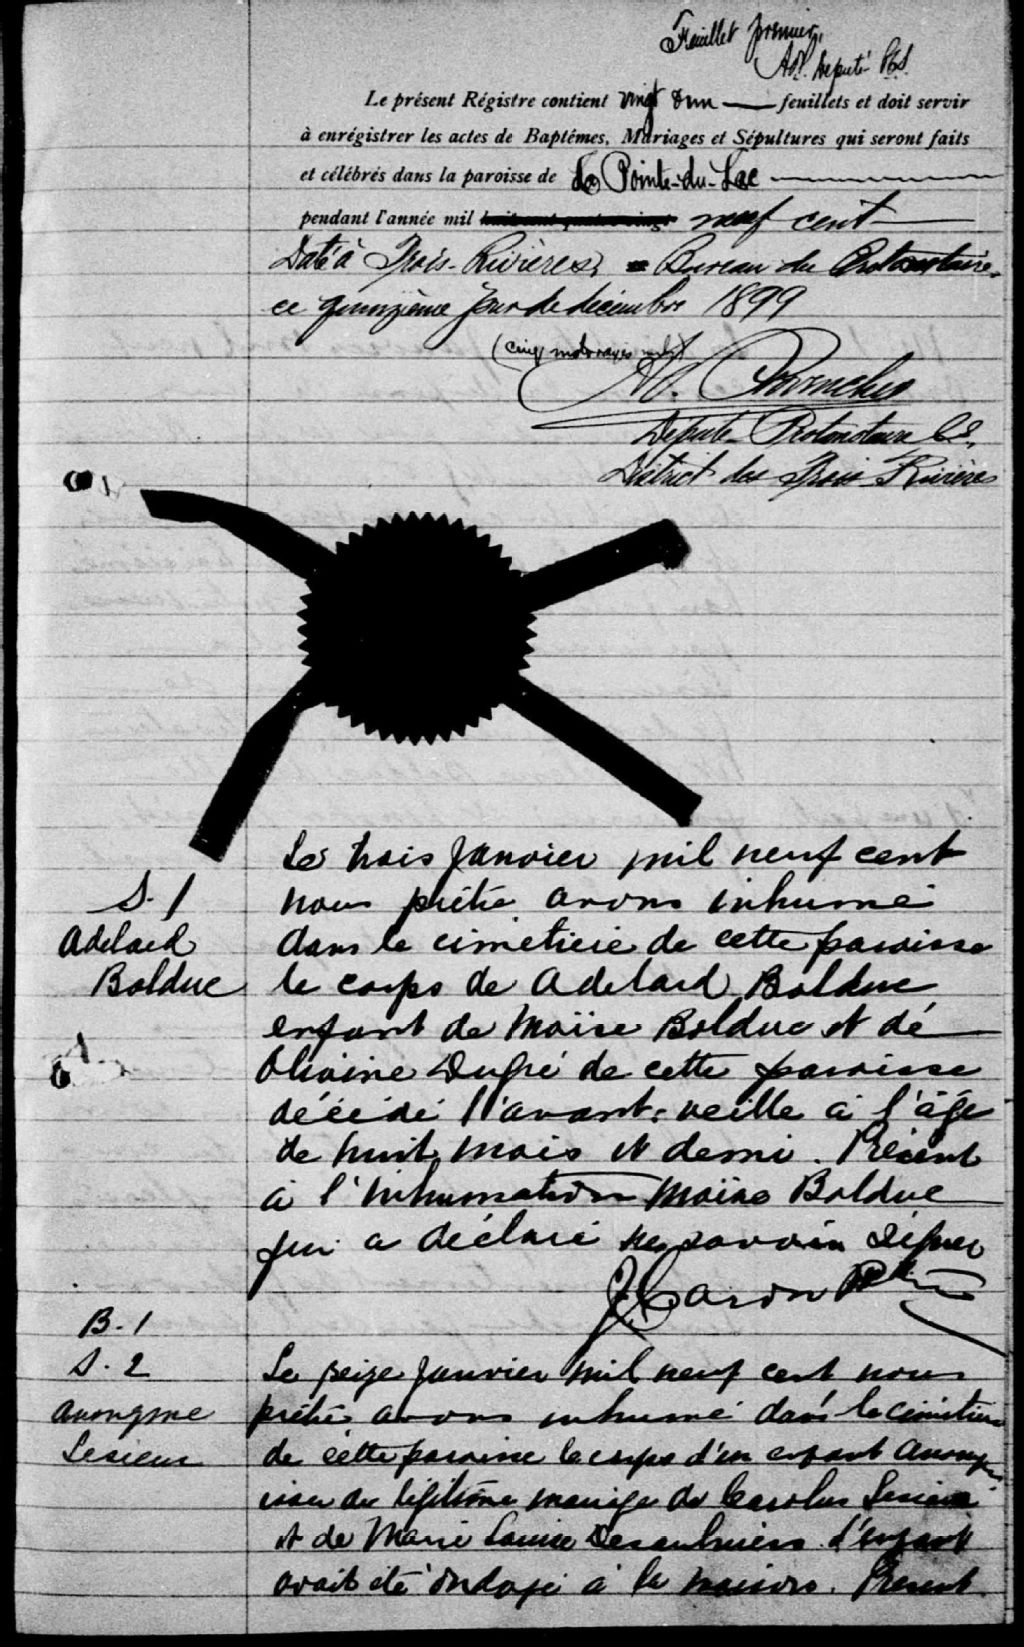 Feuillet premier,
Député P.C.S.
Le présent Régistre contient vingt d'un feuillets et doit servir
à enrégistrer les actes de Baptêmes, Mariages et Sépultures qui seront faits
et célébrés dans la paroisse de La Pointe-du-Lac
pendant l'année mil huit cent quatre-vingt neuf cent
Daté à Trois-Rivières, Bureau du Protonotaire
ce quinzième jour de décembre 1899
(cinq mots rayés nuls)
Député Protonotaire C.S.
District des Trois Rivières
Le trois Janvier mil neuf cent
S. 1
nous prêtre avons inhumé
Adelard
dans le cimetière de cette paroisse
Bolduc
le corps de Adelard Bolduc
enfant de Moïse Bolduc et de
Olivine Dupré de cette paroisse
décédé l'avant-veille à l'âge
de huit mois et demi. Présent
à l'inhumation Moïse Bolduc
qui a déclaré ne savoir signer
Caron Ptre
B. 1
S. 2
Le seize Janvier mil neuf cent nous
anonyme
prêtre avons inhumé dans le cimetière
Lesieur
de cette paroisse le corps d'un enfant anonyme
issu du légitime mariage de Carolus Lesieur
et de Marie Louise Desaulniers. L'enfant
avait été ondoyé à la maison. Présent